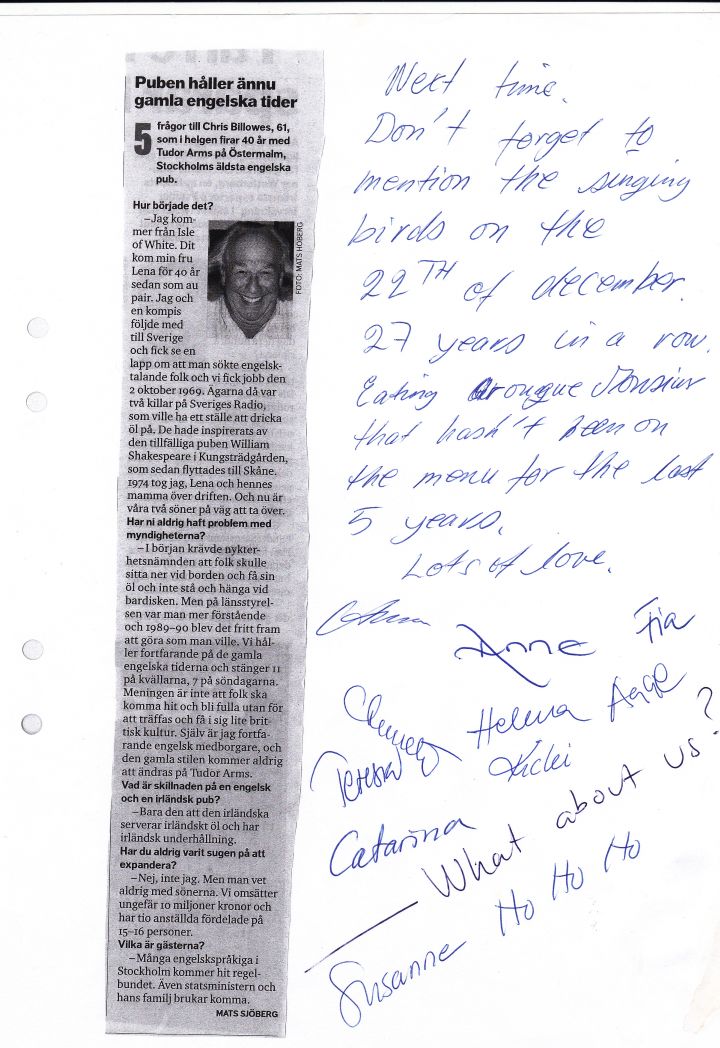 Puben håller ännu
gamla engelska tider
5 frågor till Chris Billowes, 61,
som i helgen firar 40 år med
Tudor Arms på Östermalm,
Stockholms äldsta engelska
pub.
Hur började det?
–Jag kom-
mer från Isle
of White. Dit
kom min fru
Lena för 40 år
sedan som au
pair. Jag och
en kompis
följde med
till Sverige
och fick se en
lapp om att man sökte engelsk-
talande folk och vi fick jobb den
2 oktober 1969. Ägarna då var
två killar på Sveriges Radio,
som ville ha ett ställe att dricka
öl på. De hade inspirerats av
den tillfälliga puben William
Shakespeare i Kungsträdgården,
som sedan flyttades till Skåne.
1974 tog jag, Lena och hennes
mamma över driften. Och nu är
våra två söner på väg att ta över.
Har ni aldrig haft problem med
myndigheterna?
–I början krävde nykter-
hetsnämnden att folk skulle
sitta ner vid borden och få sin
öl och inte stå och hänga vid
bardisken. Men på länsstyrel-
sen var man mer förstående
och 1989–90 blev det fritt fram
att göra som man ville. Vi hål-
ler fortfarande på de gamla
engelska tiderna och stänger 11
på kvällarna, 7 på söndagarna.
Meningen är inte att folk ska
komma hit och bli fulla utan för
att träffas och få i sig lite brit-
tisk kultur. Själv är jag fortfa-
rande engelsk medborgare, och
den gamla stilen kommer aldrig
att ändras på Tudor Arms.
Vad är skillnaden på en engelsk
och en irländsk pub?
–Bara den att den irländska
serverar irländskt öl och har
irländsk underhållning.
Har du aldrig varit sugen på att
expandera?
–Nej, inte jag. Men man vet
aldrig med sönerna. Vi omsätter
ungefär 10 miljoner kronor och
har tio anställda fördelade på
15–16 personer.
Vilka är gästerna?
–Många engelskspråkiga i
Stockholm kommer hit regel-
bundet. Även statsministern och
hans familj brukar komma.
MATS SJÖBERG
FOTO: MATS HÖBERG
Next time.
Don't forget to
mention the singing
birds on the
22TH of december.
27 years in a row.
Eating Crougue Monsiur
that hasn't been on
the menu for the last
5 years.
Lots of love.
Anne Fia
Helena Aage
Teresa Kicki
Catarina
What about us?
Susanne Ho Ho Ho